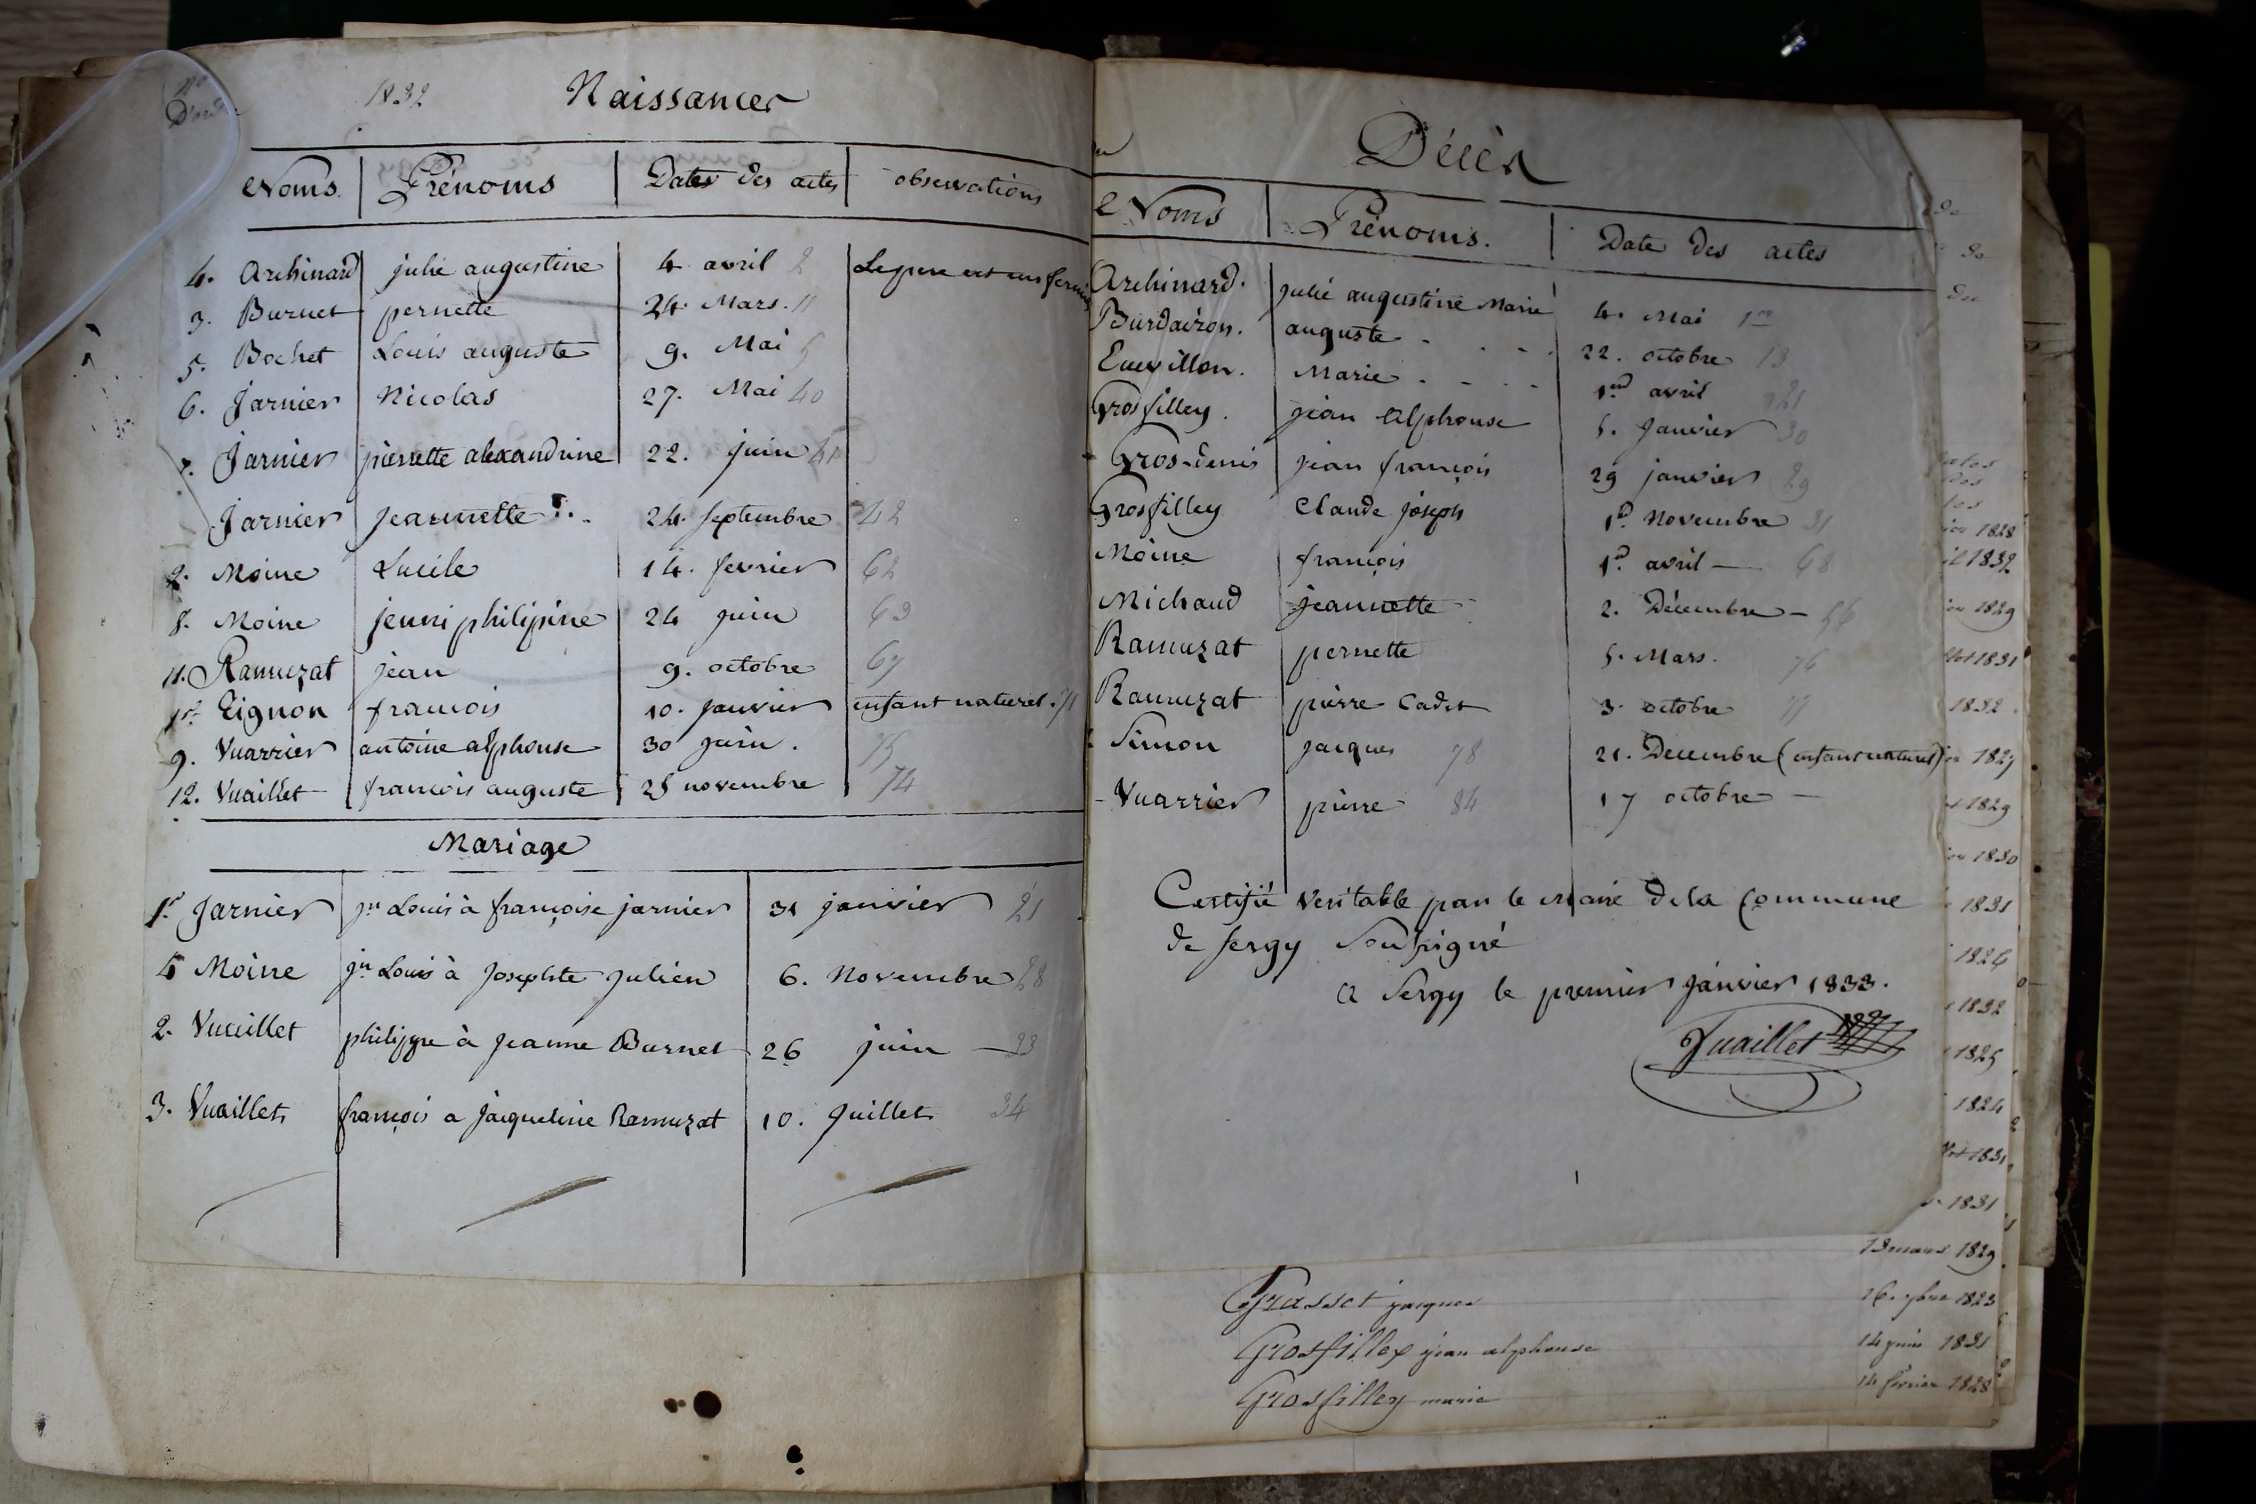 N°
D'ord
1832 Naissances
Noms. Prénoms Dates des actes observations
4. Archinard julie augustine 4 avril 2 Le père est un fermier
3. Burnet pernette 24. Mars. 11
5. Bochet Louis auguste 9. Mai 5
6. Jarnier Nicolas 27. Mai 40
7. Jarnier pierrette alexandrine 22. juin 41
Jarnier jeannette 24. septembre 42
2. Moine Lucile 14. fevrier 62
8. Moine jenni philipine 24 juin 63
11. Ramuzat jean 9. octobre 67
1er Tignon francois 10. janvier enfant naturel. 71
9. Vuarrier antoine alphonse 30 juin. 75
12. Vuaillet francois auguste 25 novembre 74
Mariage
1er Jarnier jn Louis à françoise jarnier 31 janvier 21
4 Moine jn Louis à Josephte Julien 6. Novembre 28
2. Vuaillet philippe à Jeanne Burnet 26 juin 33
3. Vuaillet françois a Jaqueline Ramuzat 10. Juillet 34
Décès
Noms Prénoms. Date des actes
Archinard. julie augustine Marie 4. Mai 1er
Burdairon. auguste 22. octobre 13
Cuevillon. Marie 1er avril 21
Grosfilley. jean Alphonse 5. Janvier 30
Gros-denis jean françois 29 janvier 29
Grosfilley Claude joseph 1er Novembre 31
Moine françois 1er avril 68
Michaud jeannette 2. Décembre 56
Ramuzat pernette 5. Mars. 76
Ramuzat pierre Cadet 3. octobre 77
Simon jacques 78 21. Decembre (enfant naturel)
Vuarrier pierre 84 17 octobre
Certifié veritable par le Maire de la Commune
de Sergy Soussigné
a Sergy le premier janvier 1833.
Vuaillet
1828
1832
1829
1831
1832
1827
1829
1830
1831
1826
1832
1825
1824
1831
1831
13 mars 1829
Grasset jacques 16. 9bre 1823
Grosfilley jean alphonse 14 juin 1831
Grosfilley marie 14 fevrier 1828